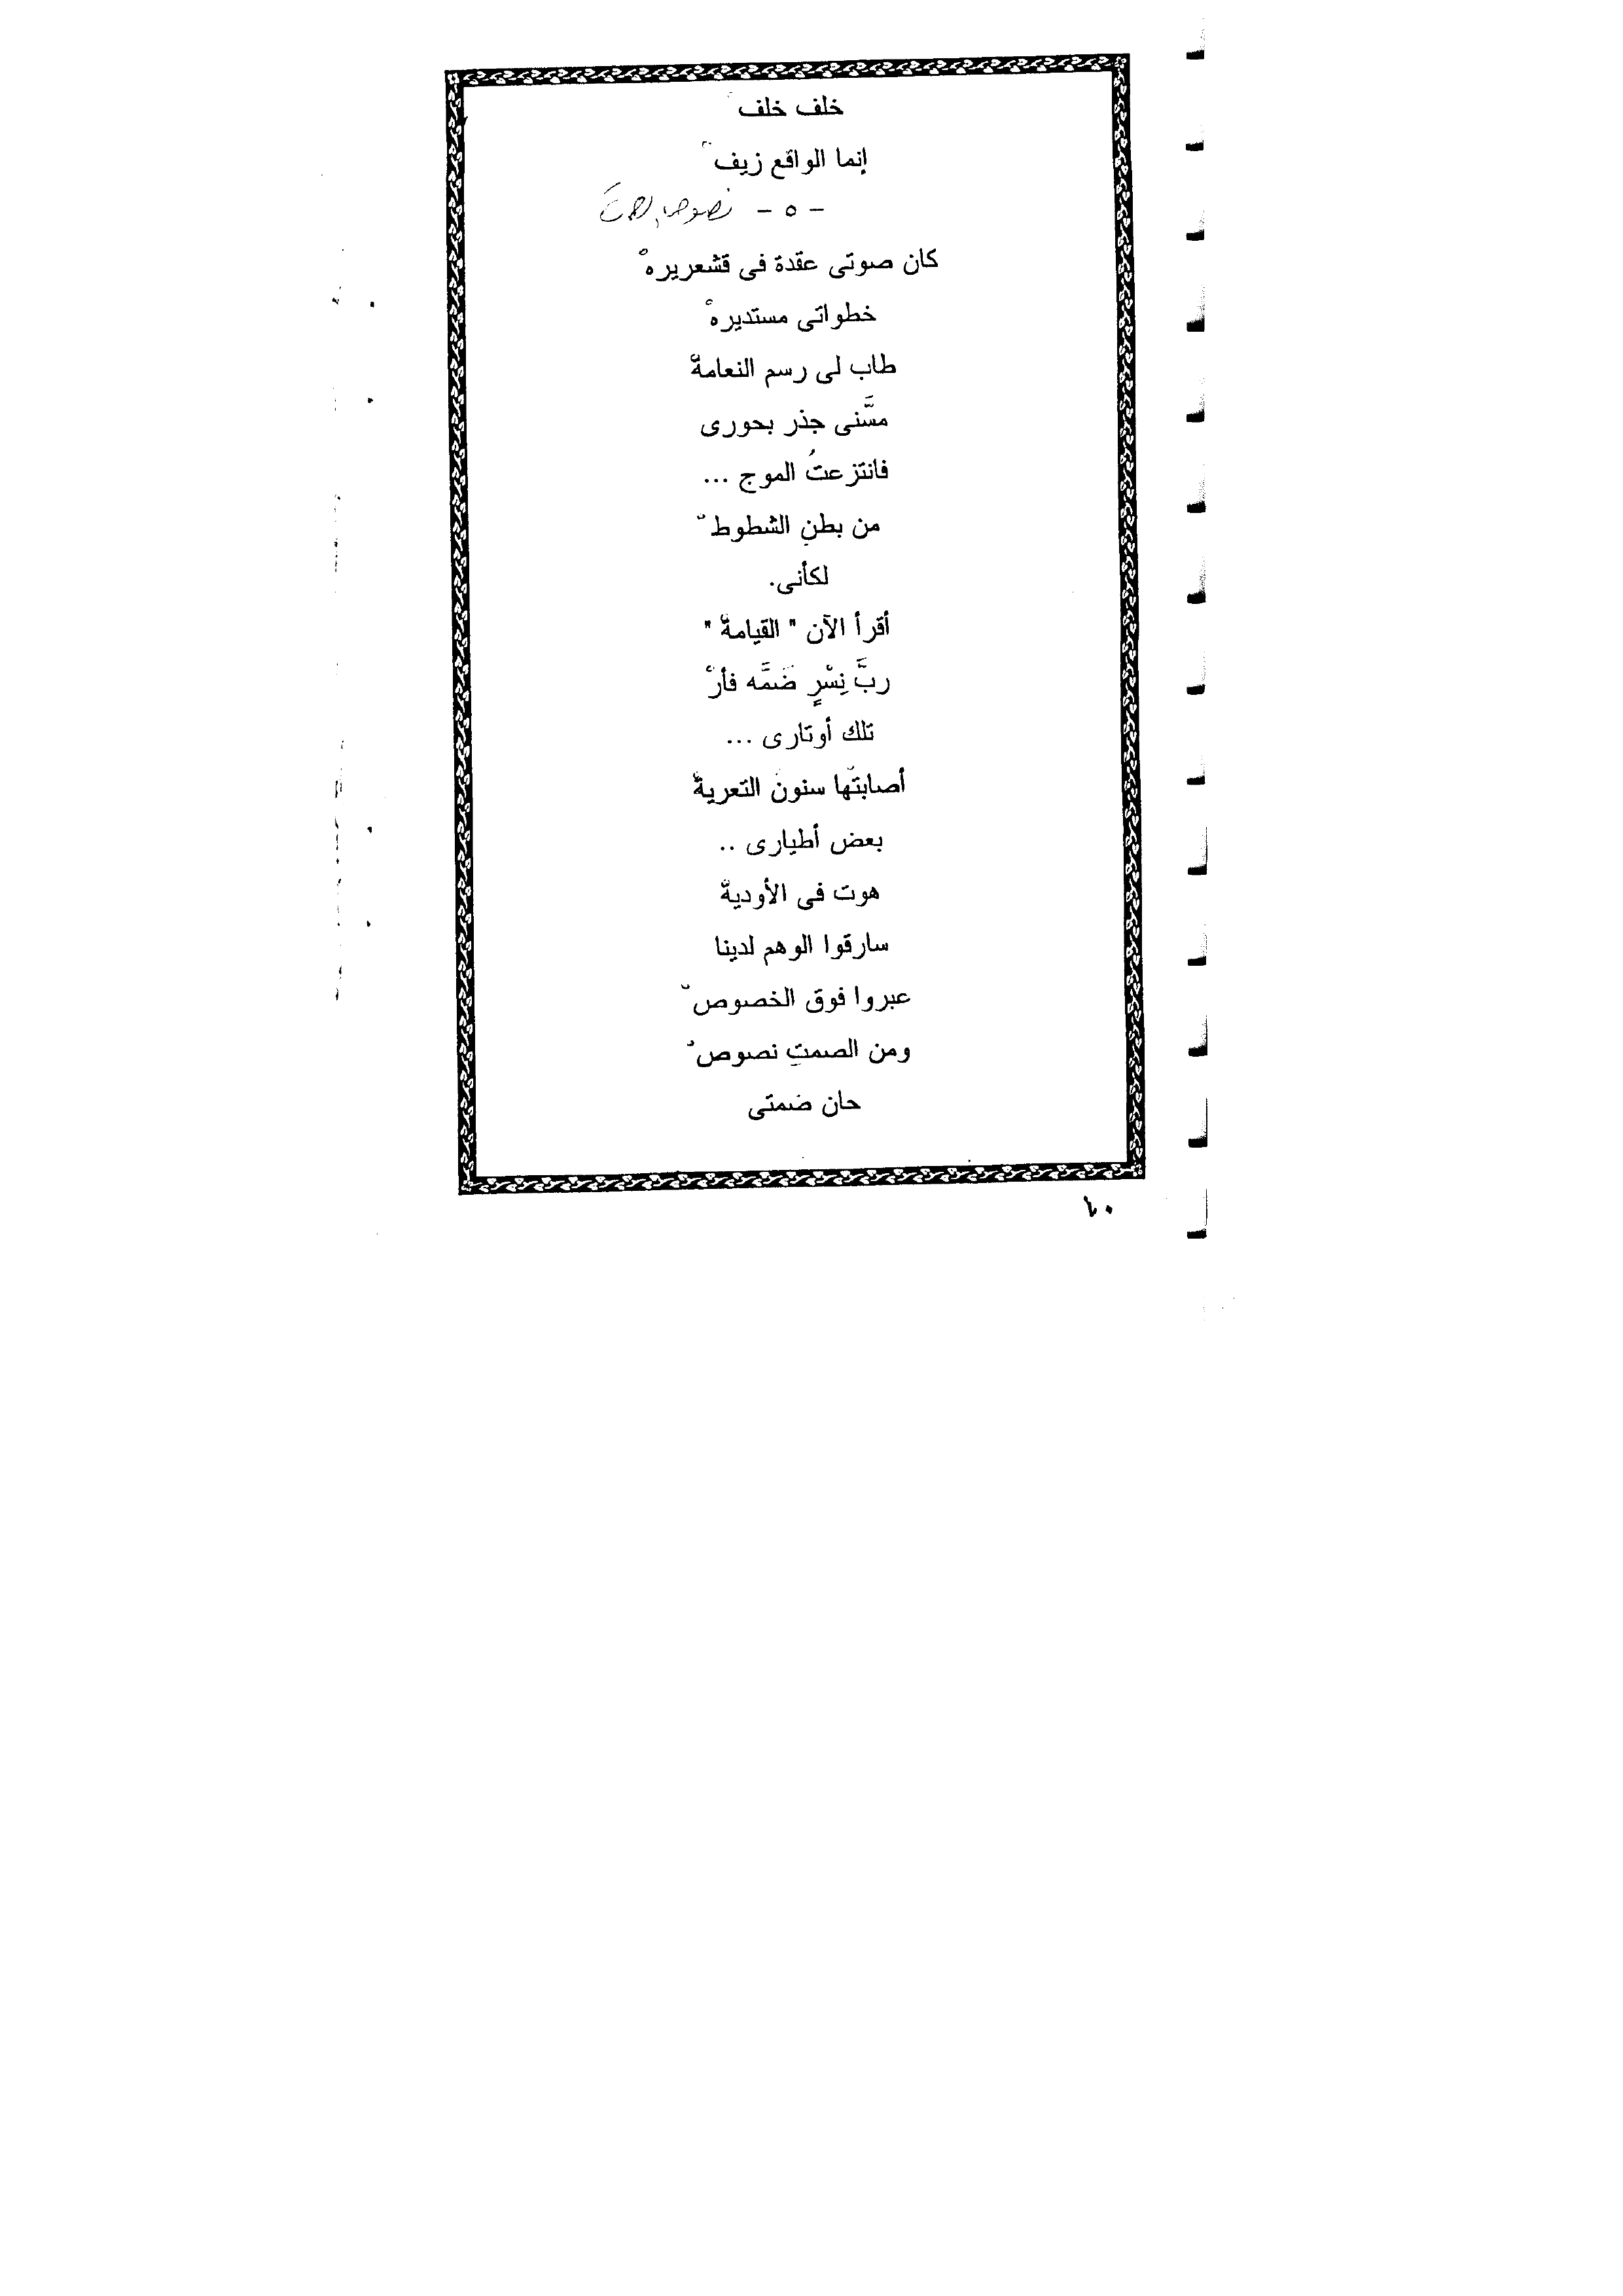 خلف خلف
إنما الواقع زيفْ
- ٥ - نصوص الصمت
كان صوتى عقدة فى قشعريرهْ
خطواتى مستديرهْ
طاب لى رسم النعامةْ
مسَّنى جذر بحورى
فانتزعتُ الموج ...
من بطنِ الشطوطْ
لكأنى.
أقرأ الآن " القيامةْ "
ربَّ نِسْرٍ ضَمَّه فأرْ
تلك أوتارى ...
أصابتْها سنونَ التعريةْ
بعض أطيارى ..
هوت فى الأوديةْ
سارقوا الوهم لدينا
عبروا فوق الخصوصْ
ومن الصمتِ نصوصْ
حان ضمتى
١٠